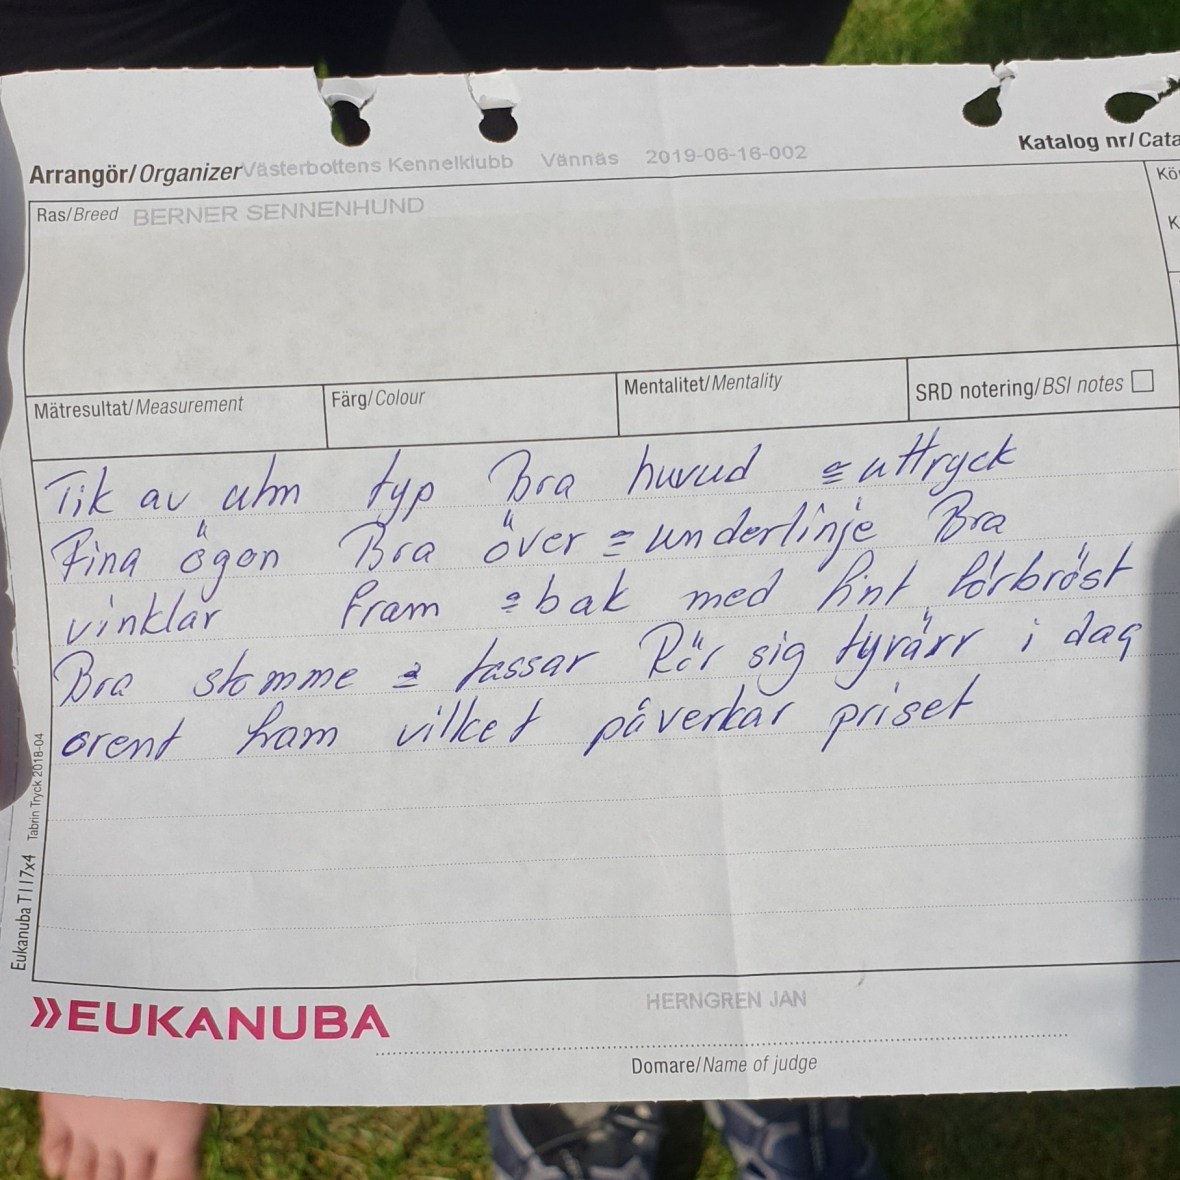 Arrangör/Organizer Västerbottens Kennelklubb Vännäs 2019-06-16-002
Katalog nr/Cata
Ras/Breed BERNER SENNENHUND
Kö
K
Mätresultat/Measurement
Färg/Colour
Mentalitet/Mentality
SRD notering/BSI notes
Tik av utm typ Bra huvud & uttryck
Fina ögon Bra över & underlinje Bra
vinklar fram & bak med fint förbröst
Bra stomme & tassar Rör sig tyvärr i dag
orent fram vilket påverkar priset
Eukanuba T117x4 Tabrin Tryck 2018-04
»EUKANUBA
HERNGREN JAN
Domare/Name of judge